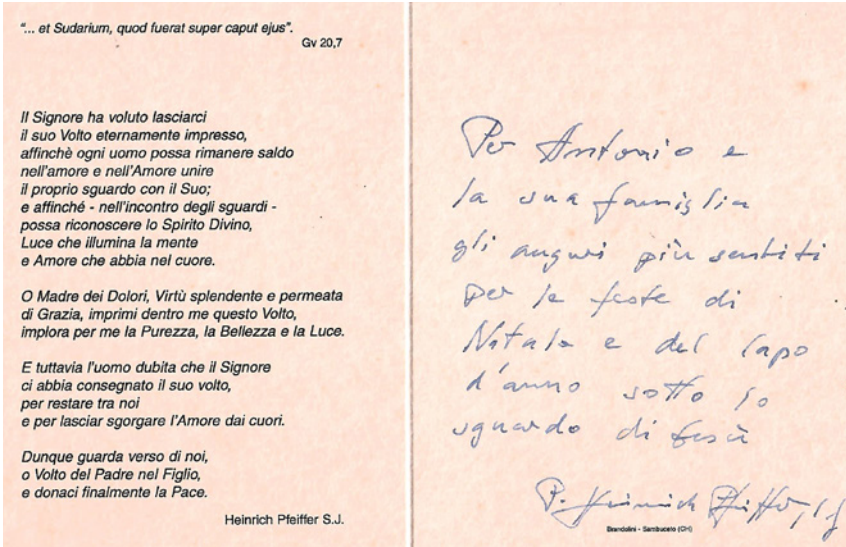 "... et Sudarium, quod fuerat super caput ejus".
Gv 20,7
Il Signore ha voluto lasciarci
il suo Volto eternamente impresso,
affinchè ogni uomo possa rimanere saldo
nell'amore e nell'Amore unire
il proprio sguardo con il Suo;
e affinché - nell'incontro degli sguardi -
possa riconoscere lo Spirito Divino,
Luce che illumina la mente
e Amore che abbia nel cuore.
O Madre dei Dolori, Virtù splendente e permeata
di Grazia, imprimi dentro me questo Volto,
implora per me la Purezza, la Bellezza e la Luce.
E tuttavia l'uomo dubita che il Signore
ci abbia consegnato il suo volto,
per restare tra noi
e per lasciar sgorgare l'Amore dai cuori.
Dunque guarda verso di noi,
o Volto del Padre nel Figlio,
e donaci finalmente la Pace.
Heinrich Pfeiffer S.J.
Per Antonio e
la sua famiglia
gli auguri più sentiti
per le feste di
Natale e del capo
d'anno sotto lo
sguardo di Gesù
P. Heinrich Pfeiffer, sj
Brandolini - Sambuceto (CH)